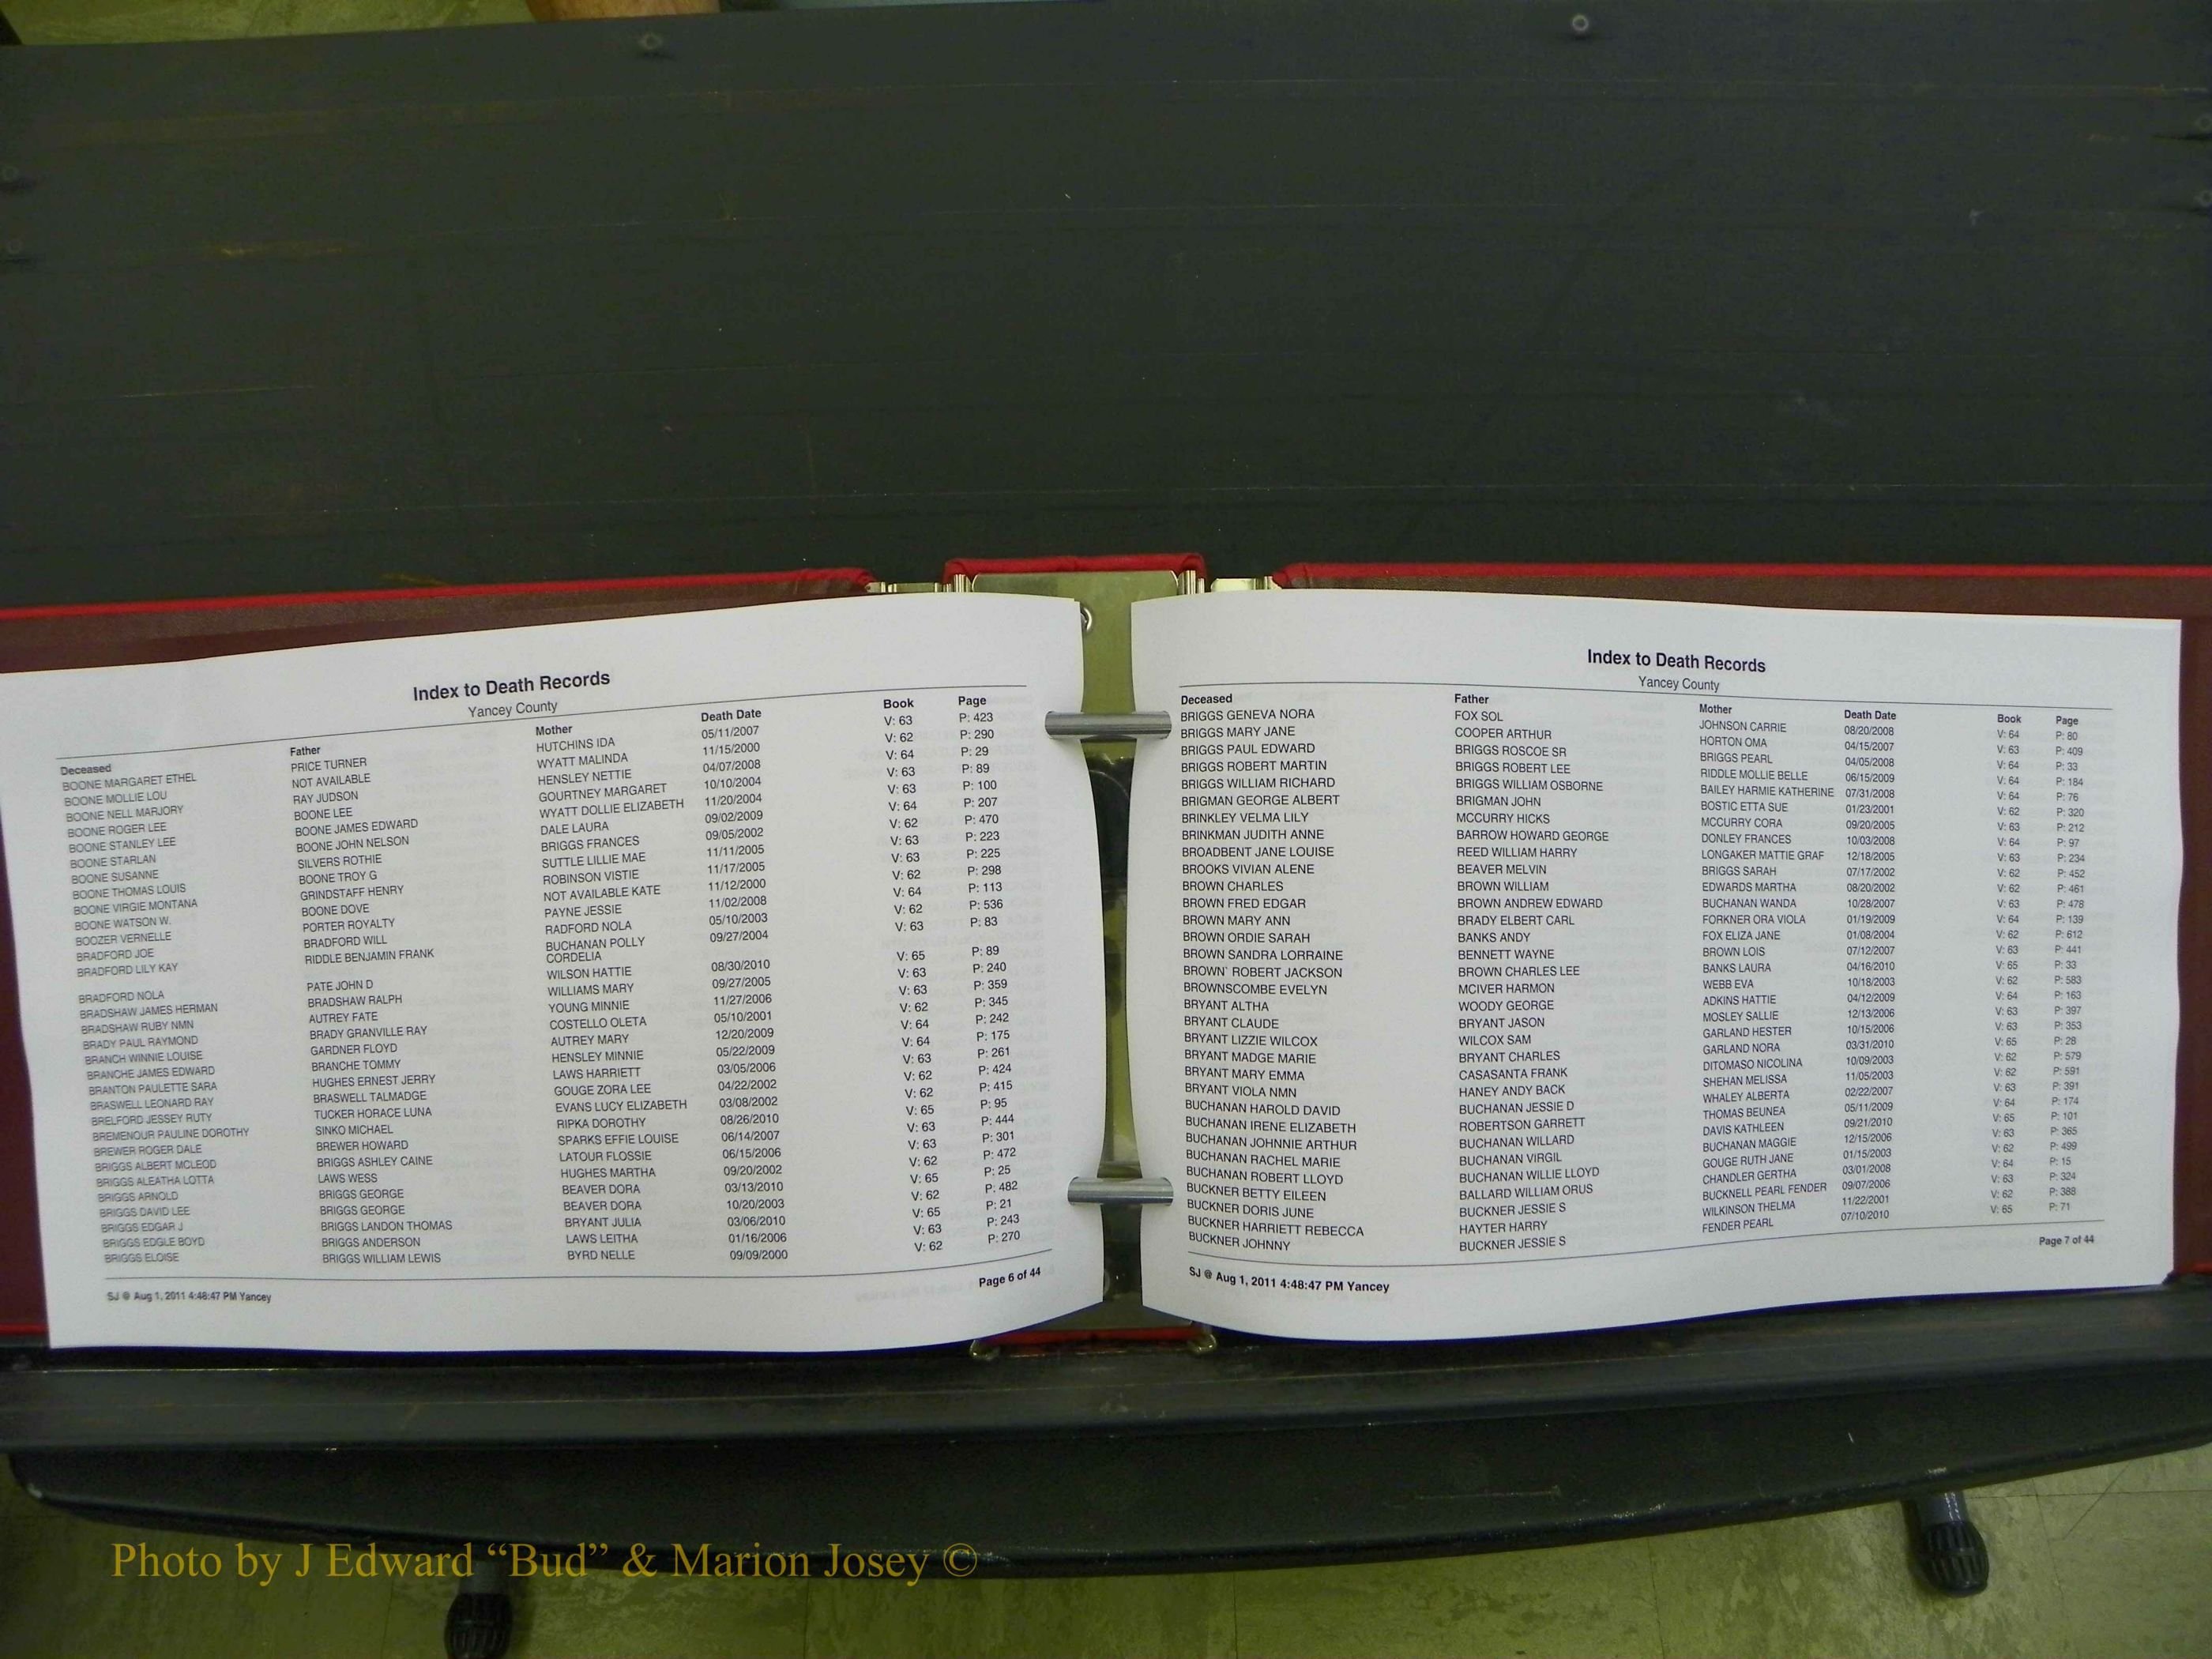 Index to Death Records
Yancey County
Deceased Father Mother Death Date Book Page
BOONE MARGARET ETHEL PRICE TURNER HUTCHINS IDA 05/11/2007 V: 63 P: 423
BOONE MOLLIE LOU NOT AVAILABLE WYATT MALINDA 11/15/2000 V: 62 P: 290
BOONE NELL MARJORY RAY JUDSON HENSLEY NETTIE 04/07/2008 V: 64 P: 29
BOONE ROGER LEE BOONE LEE GOURTNEY MARGARET 10/10/2004 V: 63 P: 89
BOONE STANLEY LEE BOONE JAMES EDWARD WYATT DOLLIE ELIZABETH 11/20/2004 V: 63 P: 100
BOONE STARLAN BOONE JOHN NELSON DALE LAURA 09/02/2009 V: 64 P: 207
BOONE SUSANNE SILVERS ROTHIE BRIGGS FRANCES 09/05/2002 V: 62 P: 470
BOONE THOMAS LOUIS BOONE TROY G SUTTLE LILLIE MAE 11/11/2005 V: 63 P: 223
BOONE VIRGIE MONTANA GRINDSTAFF HENRY ROBINSON VISTIE 11/17/2005 V: 63 P: 225
BOONE WATSON W. BOONE DOVE NOT AVAILABLE KATE 11/12/2000 V: 62 P: 298
BOOZER VERNELLE PORTER ROYALTY PAYNE JESSIE 11/02/2008 V: 64 P: 113
BRADFORD JOE BRADFORD WILL RADFORD NOLA 05/10/2003 V: 62 P: 536
BRADFORD LILY KAY RIDDLE BENJAMIN FRANK BUCHANAN POLLY 09/27/2004 V: 63 P: 83
CORDELIA
BRADFORD NOLA PATE JOHN D WILSON HATTIE 08/30/2010 V: 65 P: 89
BRADSHAW JAMES HERMAN BRADSHAW RALPH WILLIAMS MARY 09/27/2005 V: 63 P: 240
BRADSHAW RUBY NMN AUTREY FATE YOUNG MINNIE 11/27/2006 V: 63 P: 359
BRADY PAUL RAYMOND BRADY GRANVILLE RAY COSTELLO OLETA 05/10/2001 V: 62 P: 345
BRANCH WINNIE LOUISE GARDNER FLOYD AUTREY MARY 12/20/2009 V: 64 P: 242
BRANCHE JAMES EDWARD BRANCHE TOMMY HENSLEY MINNIE 05/22/2009 V: 64 P: 175
BRANTON PAULETTE SARA HUGHES ERNEST JERRY LAWS HARRIETT 03/05/2006 V: 63 P: 261
BRASWELL LEONARD RAY BRASWELL TALMADGE GOUGE ZORA LEE 04/22/2002 V: 62 P: 424
BRELFORD JESSEY RUTY TUCKER HORACE LUNA EVANS LUCY ELIZABETH 03/08/2002 V: 62 P: 415
BREMENOUR PAULINE DOROTHY SINKO MICHAEL RIPKA DOROTHY 08/26/2010 V: 65 P: 95
BREWER ROGER DALE BREWER HOWARD SPARKS EFFIE LOUISE 06/14/2007 V: 63 P: 444
BRIGGS ALBERT MCLEOD BRIGGS ASHLEY CAINE LATOUR FLOSSIE 06/15/2006 V: 63 P: 301
BRIGGS ALEATHA LOTTA LAWS WESS HUGHES MARTHA 09/20/2002 V: 62 P: 472
BRIGGS ARNOLD BRIGGS GEORGE BEAVER DORA 03/13/2010 V: 65 P: 25
BRIGGS DAVID LEE BRIGGS GEORGE BEAVER DORA 10/20/2003 V: 62 P: 482
BRIGGS EDGAR J BRIGGS LANDON THOMAS BRYANT JULIA 03/06/2010 V: 65 P: 21
BRIGGS EDGLE BOYD BRIGGS ANDERSON LAWS LEITHA 01/16/2006 V: 63 P: 243
BRIGGS ELOISE BRIGGS WILLIAM LEWIS BYRD NELLE 09/09/2000 V: 62 P: 270
SJ @ Aug 1, 2011 4:48:47 PM Yancey Page 6 of 44
Index to Death Records
Yancey County
Deceased Father Mother Death Date Book Page
BRIGGS GENEVA NORA FOX SOL JOHNSON CARRIE 08/20/2008 V: 64 P: 80
BRIGGS MARY JANE COOPER ARTHUR HORTON OMA 04/15/2007 V: 63 P: 409
BRIGGS PAUL EDWARD BRIGGS ROSCOE SR BRIGGS PEARL 04/05/2008 V: 64 P: 33
BRIGGS ROBERT MARTIN BRIGGS ROBERT LEE RIDDLE MOLLIE BELLE 06/15/2009 V: 64 P: 184
BRIGGS WILLIAM RICHARD BRIGGS WILLIAM OSBORNE BAILEY HARMIE KATHERINE 07/31/2008 V: 64 P: 76
BRIGMAN GEORGE ALBERT BRIGMAN JOHN BOSTIC ETTA SUE 01/23/2001 V: 62 P: 320
BRINKLEY VELMA LILY MCCURRY HICKS MCCURRY CORA 09/20/2005 V: 63 P: 212
BRINKMAN JUDITH ANNE BARROW HOWARD GEORGE DONLEY FRANCES 10/03/2008 V: 64 P: 97
BROADBENT JANE LOUISE REED WILLIAM HARRY LONGAKER MATTIE GRAF 12/18/2005 V: 63 P: 234
BROOKS VIVIAN ALENE BEAVER MELVIN BRIGGS SARAH 07/17/2002 V: 62 P: 452
BROWN CHARLES BROWN WILLIAM EDWARDS MARTHA 08/20/2002 V: 62 P: 461
BROWN FRED EDGAR BROWN ANDREW EDWARD BUCHANAN WANDA 10/28/2007 V: 63 P: 478
BROWN MARY ANN BRADY ELBERT CARL FORKNER ORA VIOLA 01/19/2009 V: 64 P: 139
BROWN ORDIE SARAH BANKS ANDY FOX ELIZA JANE 01/08/2004 V: 62 P: 612
BROWN SANDRA LORRAINE BENNETT WAYNE BROWN LOIS 07/12/2007 V: 63 P: 441
BROWN` ROBERT JACKSON BROWN CHARLES LEE BANKS LAURA 04/16/2010 V: 65 P: 33
BROWNSCOMBE EVELYN MCIVER HARMON WEBB EVA 10/18/2003 V: 62 P: 583
BRYANT ALTHA WOODY GEORGE ADKINS HATTIE 04/12/2009 V: 64 P: 163
BRYANT CLAUDE BRYANT JASON MOSLEY SALLIE 12/13/2006 V: 63 P: 397
BRYANT LIZZIE WILCOX WILCOX SAM GARLAND HESTER 10/15/2006 V: 63 P: 353
BRYANT MADGE MARIE BRYANT CHARLES GARLAND NORA 03/31/2010 V: 65 P: 28
BRYANT MARY EMMA CASASANTA FRANK DITOMASO NICOLINA 10/09/2003 V: 62 P: 579
BRYANT VIOLA NMN HANEY ANDY BACK SHEHAN MELISSA 11/05/2003 V: 62 P: 591
BUCHANAN HAROLD DAVID BUCHANAN JESSIE D WHALEY ALBERTA 02/22/2007 V: 63 P: 391
BUCHANAN IRENE ELIZABETH ROBERTSON GARRETT THOMAS BEUNEA 05/11/2009 V: 64 P: 174
BUCHANAN JOHNNIE ARTHUR BUCHANAN WILLARD DAVIS KATHLEEN 09/21/2010 V: 65 P: 101
BUCHANAN RACHEL MARIE BUCHANAN VIRGIL BUCHANAN MAGGIE 12/15/2006 V: 63 P: 365
BUCHANAN ROBERT LLOYD BUCHANAN WILLIE LLOYD GOUGE RUTH JANE 01/15/2003 V: 62 P: 499
BUCKNER BETTY EILEEN BALLARD WILLIAM ORUS CHANDLER GERTHA 03/01/2008 V: 64 P: 15
BUCKNER DORIS JUNE BUCKNER JESSIE S BUCKNELL PEARL FENDER 09/07/2006 V: 63 P: 324
BUCKNER HARRIETT REBECCA HAYTER HARRY WILKINSON THELMA 11/22/2001 V: 62 P: 388
BUCKNER JOHNNY BUCKNER JESSIE S FENDER PEARL 07/10/2010 V: 65 P: 71
SJ @ Aug 1, 2011 4:48:47 PM Yancey Page 7 of 44
Photo by J Edward “Bud” & Marion Josey ©